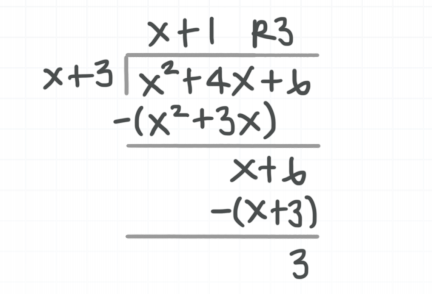 x+1 R3
x+3 x²+4x+6
-(x²+3x)
x+6
-(x+3)
3